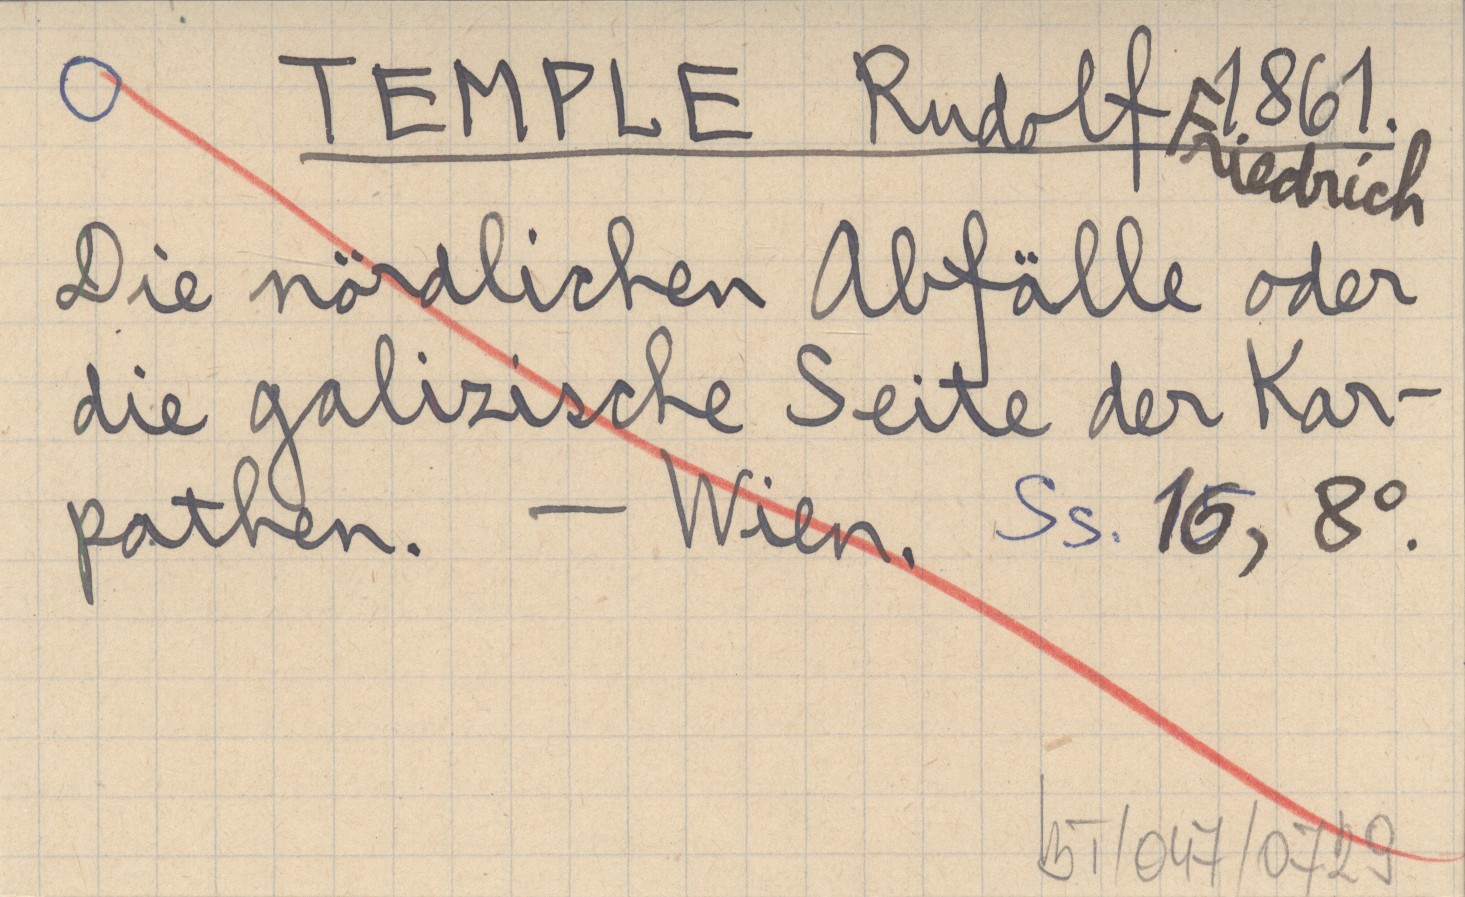 TEMPLE Rudolf Friedrich 1861.
Die nördlichen Abfälle oder
die galizische Seite der Kar-
pathen. — Wien. Ss. 15, 8°.
BT/047/0729